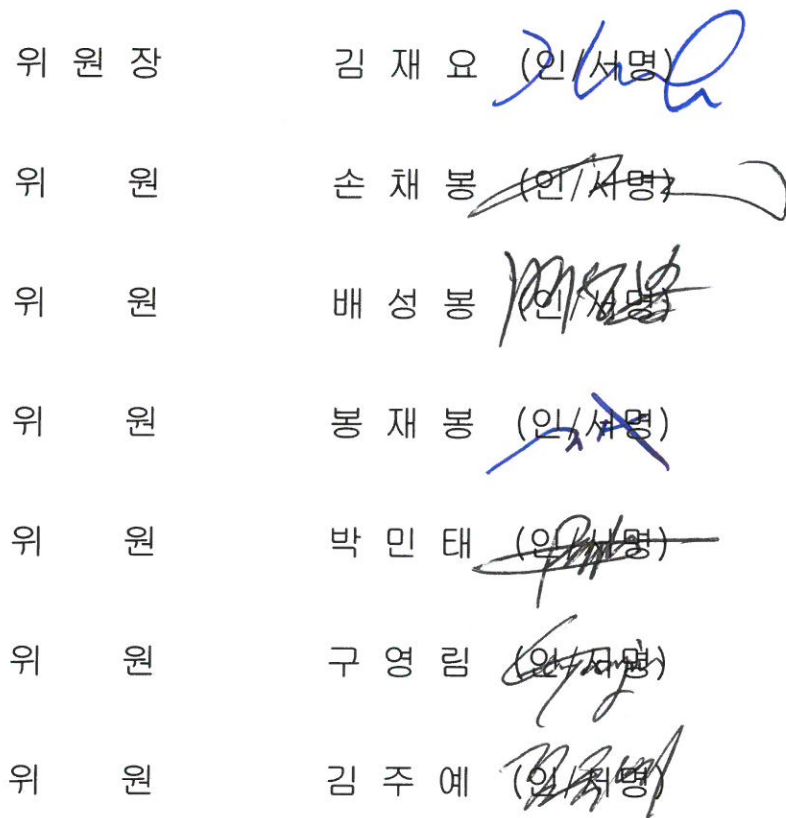 위 원 장 김 재 요 (인/서명)
위 원 손 채 봉 (인/서명)
위 원 배 성 봉 (인/서명)
위 원 봉 재 봉 (인/서명)
위 원 박 민 태 (인/서명)
위 원 구 영 림 (인/서명)
위 원 김 주 예 (인/서명)